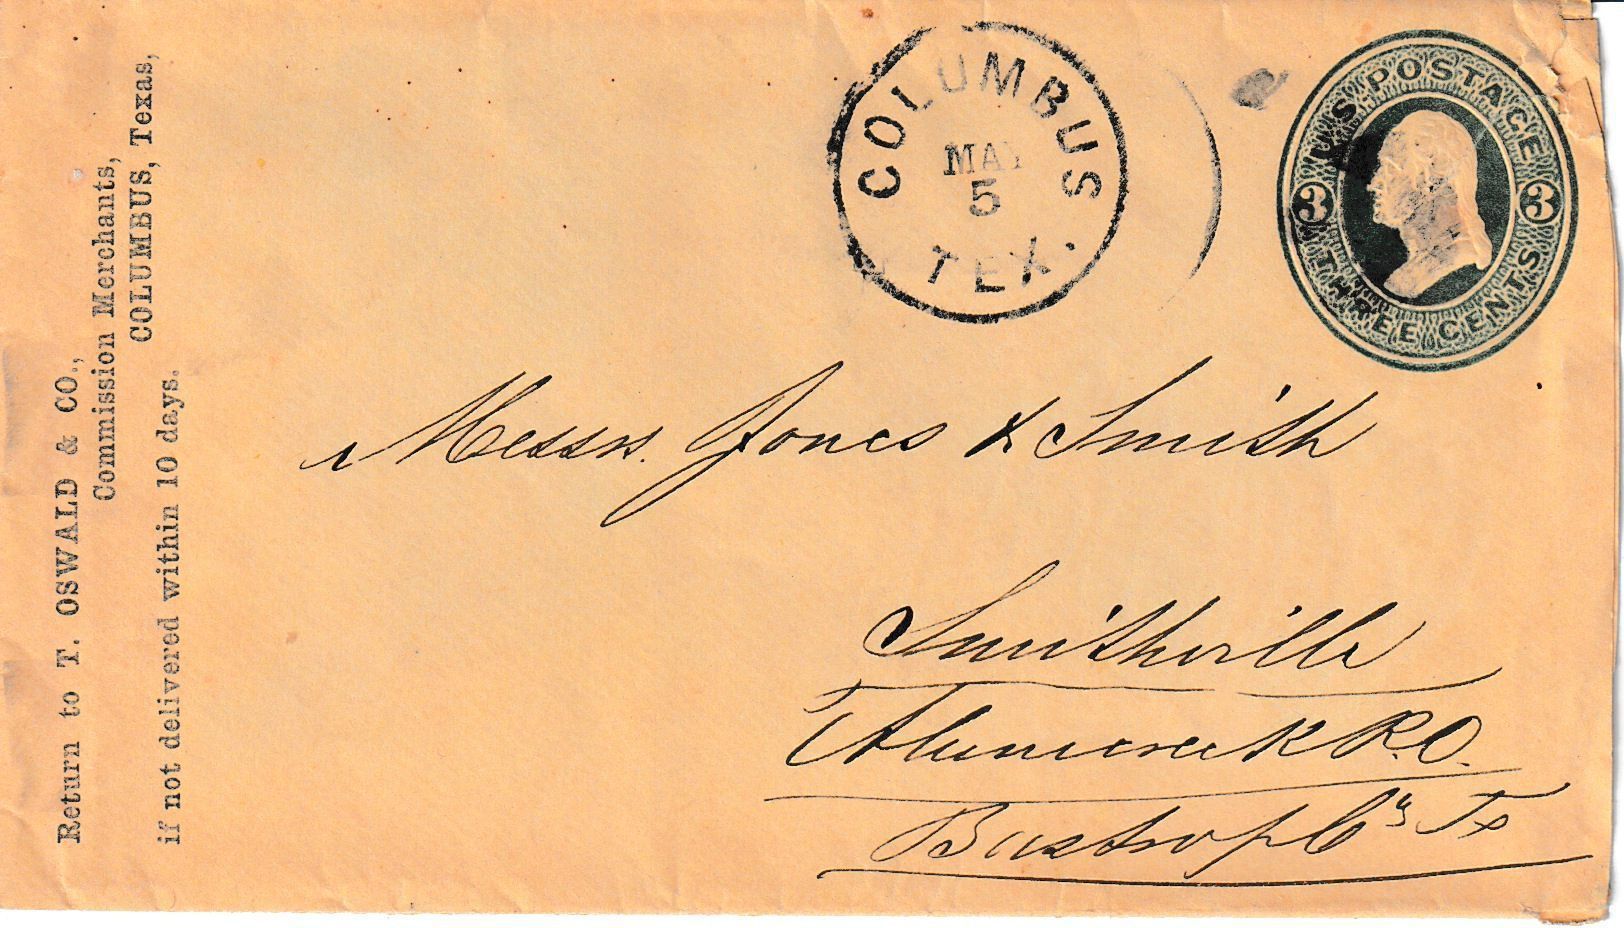 Return to T. OSWALD & CO.,
Commission Merchants,
COLUMBUS, Texas,
if not delivered within 10 days.
COLUMBUS
MAY
5
TEX.
U.S POSTAGE
3 3
THREE CENTS
Messrs. Jones & Smith
Smithville
Alum creek P.O.
Bastrop Co Tx